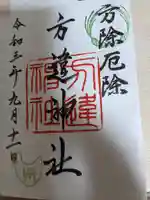 方除厄除
方違神社
方違
神社
令和三年九月十一日